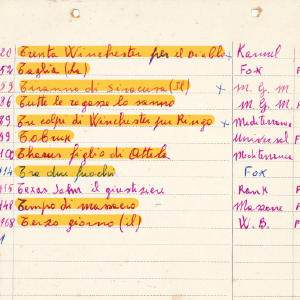 20 Trenta Winchester per il Diablo x Karusel
52 Taglia (La) Fox F
59 Tiranno di Siracusa (Il) x M. G. M.
86 Tutte le ragazze lo sanno M. G. M. F
89 Tre colpi di Winchester per Ringo x Mediterranea
99 Tobruk Universal F
100 Tharus figlio di Attila Mediterranea
114 Tra due fuochi Fox
115 Texas John il giustiziere Rank F
148 Tempo di massacro - F
968 Terzo giorno (il) W. B. F